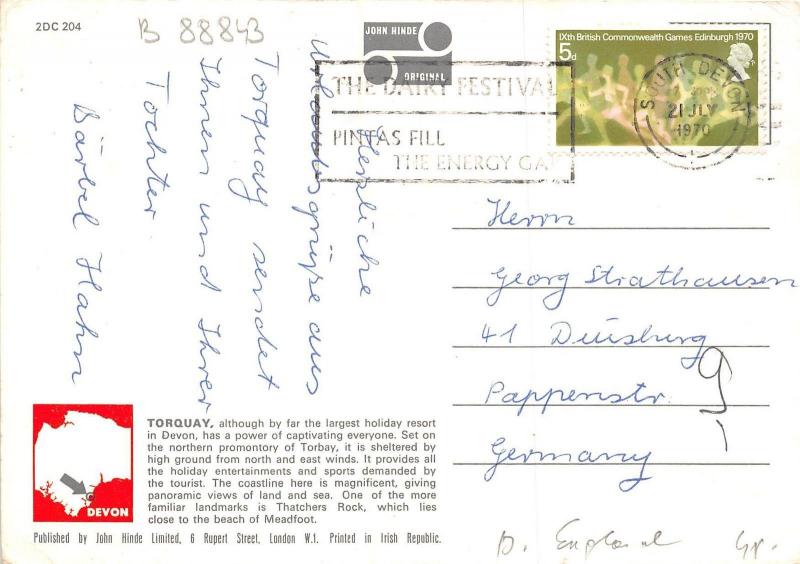 2DC 204
B 88843
JOHN HINDE
ORIGINAL
IXth British Commonwealth Games Edinburgh 1970
5d
THE DAIRY FESTIVAL
PINTAS FILL
THE ENERGY GA
SOUTH DEVON
21 JLY
1970
Herzliche
Urlaubsgrüße aus
Torquay sendet
Ihnen und Ihrer
Tochter
Bärbel Hahn
Herrn
Georg Strathausen
41 Duisburg
Pappenstr. 9
Germany
DEVON
TORQUAY, although by far the largest holiday resort
in Devon, has a power of captivating everyone. Set on
the northern promontory of Torbay, it is sheltered by
high ground from north and east winds. It provides all
the holiday entertainments and sports demanded by
the tourist. The coastline here is magnificent, giving
panoramic views of land and sea. One of the more
familiar landmarks is Thatchers Rock, which lies
close to the beach of Meadfoot.
Published by John Hinde Limited, 6 Rupert Street, London W.1. Printed in Irish Republic.
England